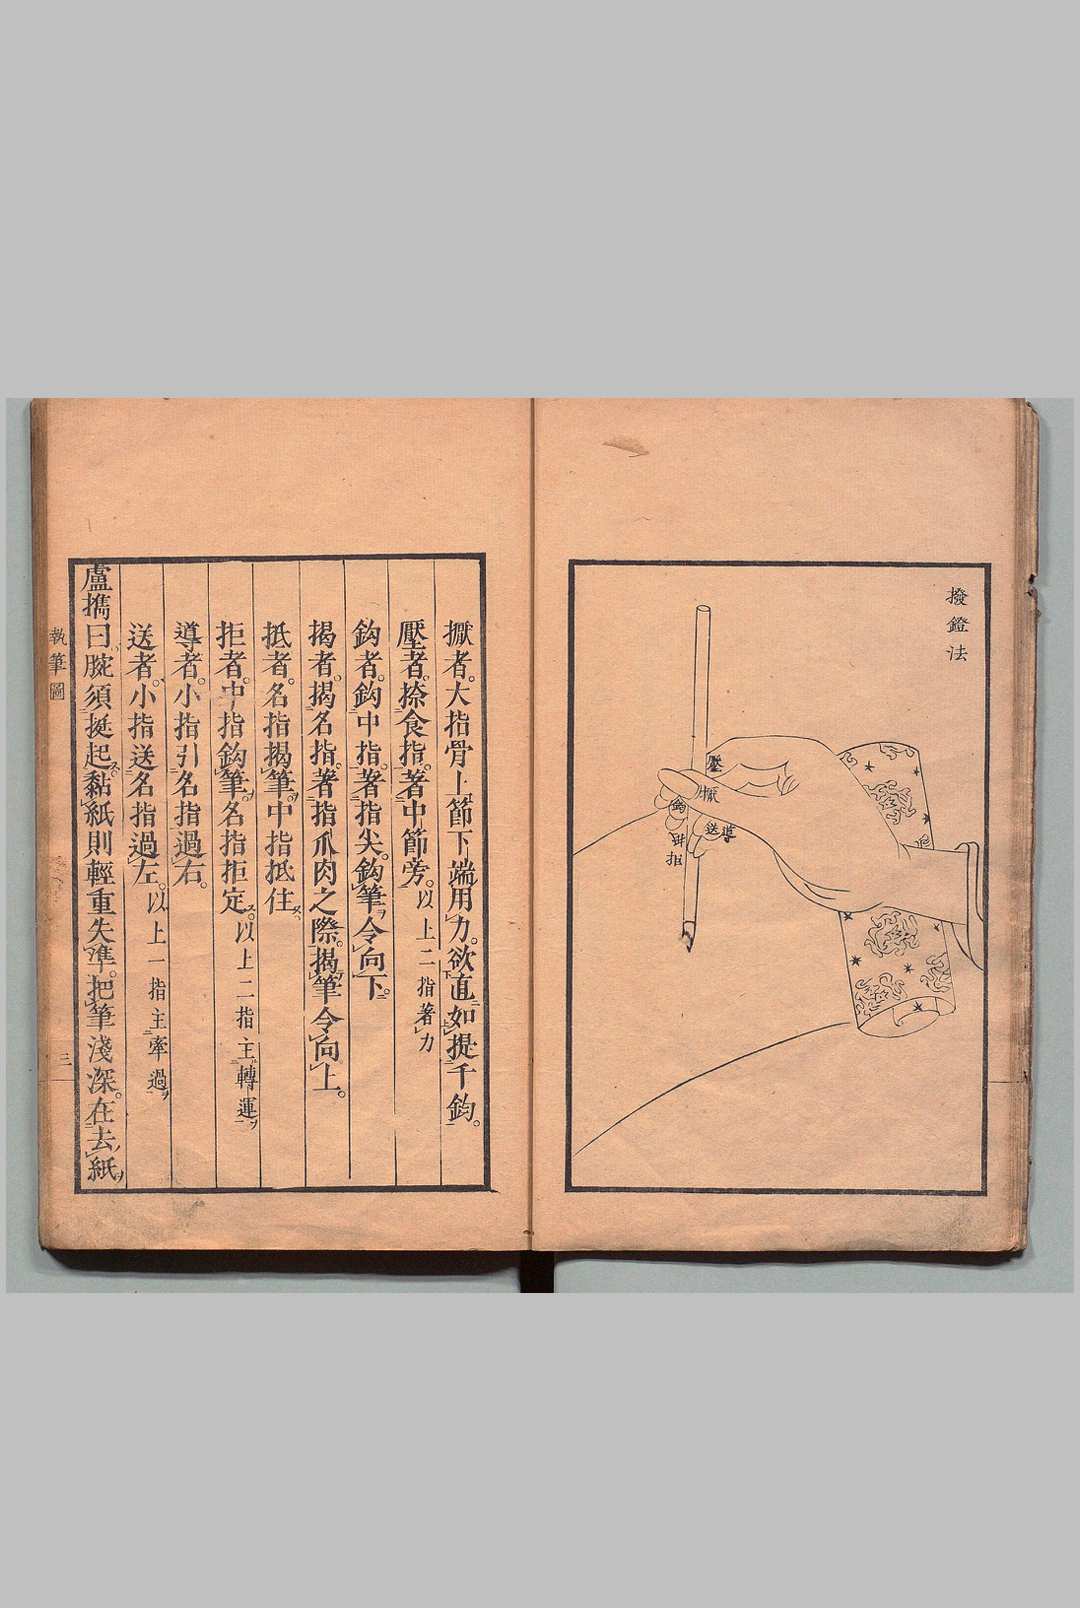 撥鐙法
壓
擫
鈎
導
送
拒
擫者。大指骨上節下端用力。欲直如提千鈞。
壓者。捺食指。著中節旁。以上二指著力
鈎者。鈎中指。著指尖。鈎筆令向下。
揭者。揭名指。著指爪肉之際。揭筆令向上。
抵者。名指揭筆。中指抵住。
拒者。中指鈎筆。名指拒定。以上二指主轉運
導者。小指引名指過右。
送者。小指送名指過左。以上一指主牽過
盧擕曰腕須挺起。黏紙則輕重失準。把筆淺深。在去紙
執筆圖
三